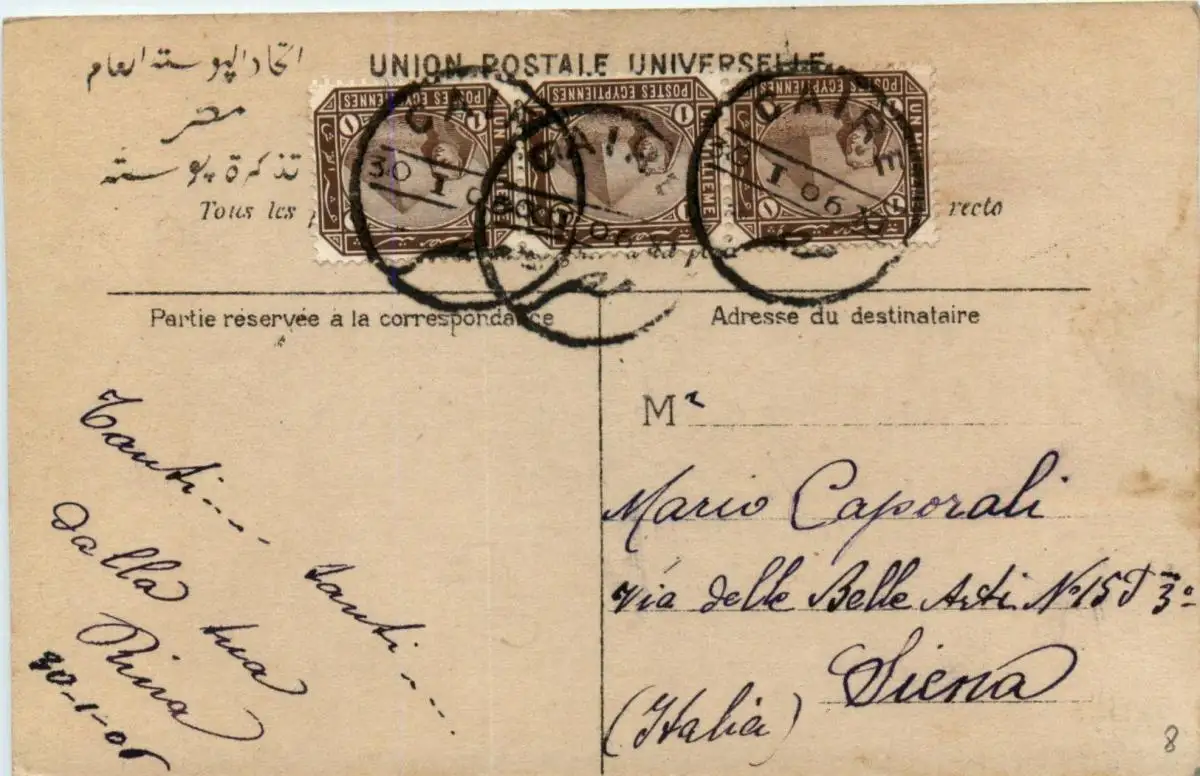 اتحاد البوسته العام
مصر
تذكرة بوسته
UNION POSTALE UNIVERSELLE
Tous les
recto
POSTES EGYPTIENNES
1 1
UN MILLIEME
POSTES EGYPTIENNES
1 1
UN MILLIEME
POSTES EGYPTIENNES
1 1
CAIRE
30 I 06
CAIRE
I 06
CAIRE
30 I 06
Partie réservée à la correspondance
Adresse du destinataire
Tanti... tanti...
dalla tua
Rina
30-1-06
Mr
Mario Caporali
Via delle Belle Arti No 15 P 3o
Siena
(Italia)
8